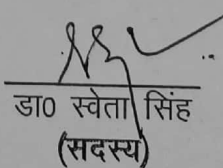 डा0 स्वेता सिंह
(सदस्य)